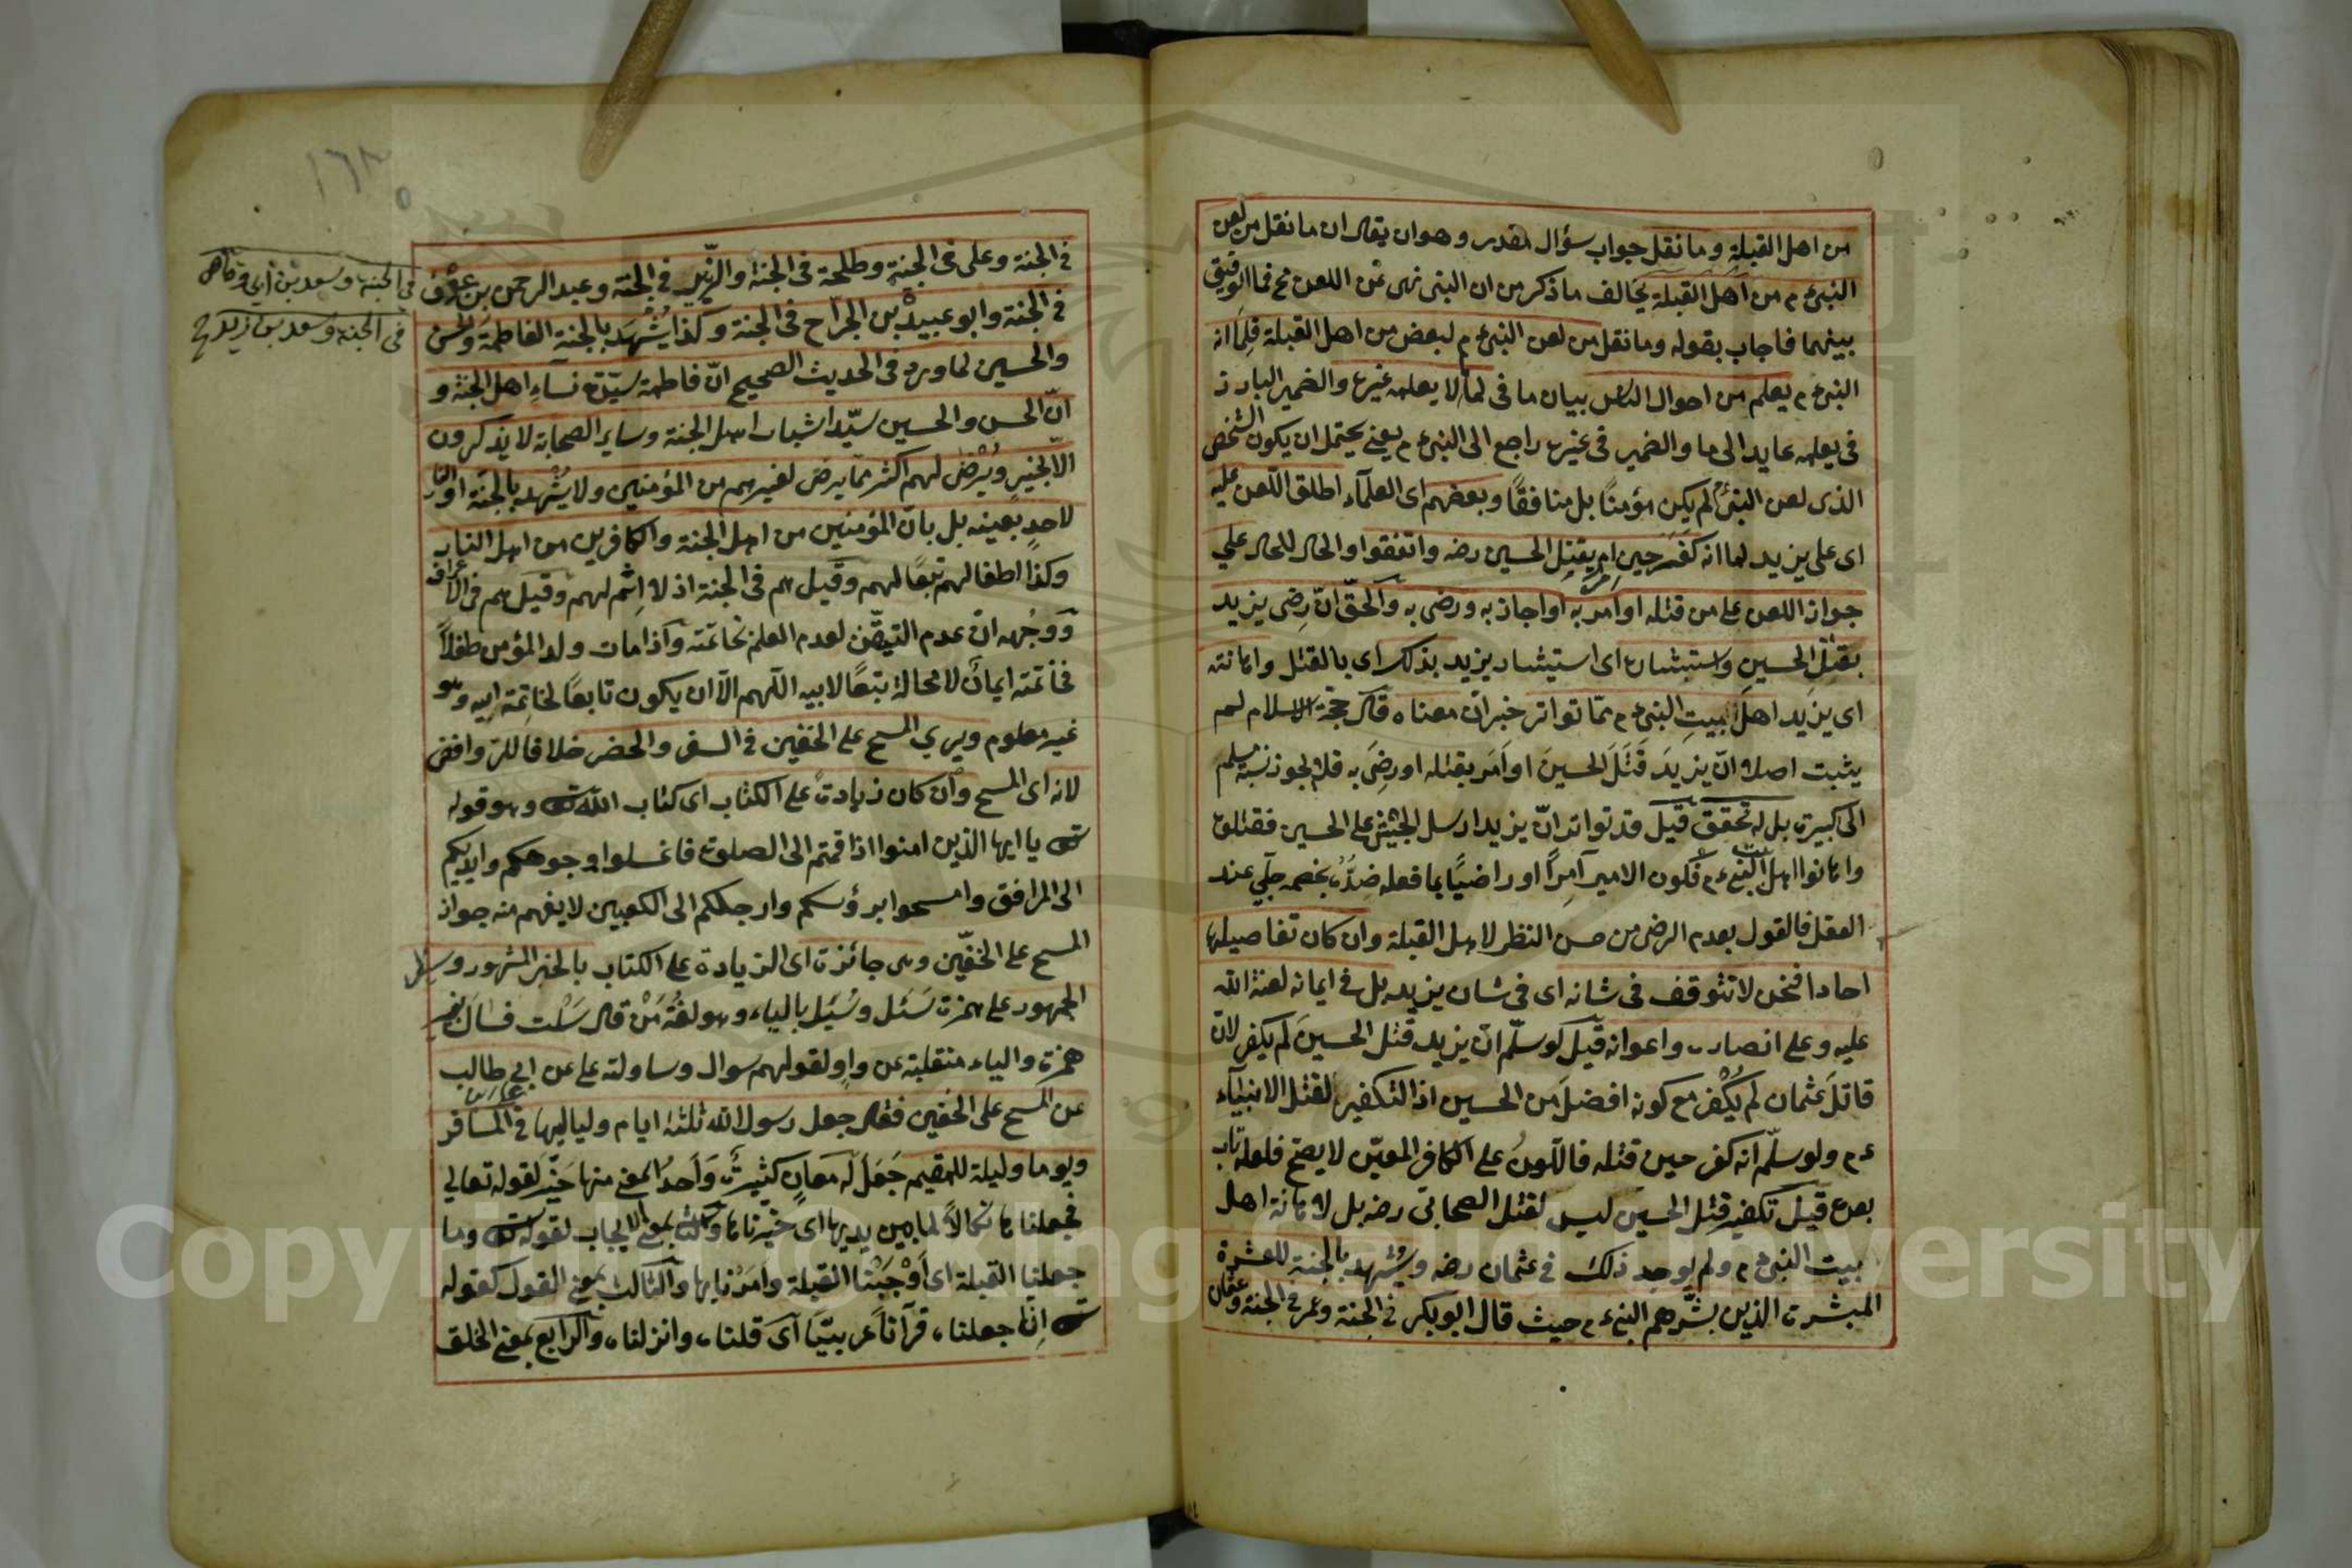 من اهل القبلة وما نقل جواب سؤال مقدر وهو ان يقال ان ما نقل من لعن
النبى عم من اهل القبلة يخالف ما ذكر من ان النبى نهى عن اللعن فما التوفيق
بينهما فاجاب بقوله وما نقل من لعن النبى عم لبعض من اهل القبلة فلما انه
النبى عم يعلم من احوال الناس بيان ما فى لما لا يعلمه غيره والضمير البارز
فى يعلمه عايد الى ما والضمير فى غيره راجع الى النبى عم يعنى يحتمل ان يكون الشخص
الذى لعن النبى عم لم يكن مؤمنًا بل منافقًا وبعضهم اى العلمآء اطلق اللعن عليه
اى على يزيد لما انه كفر حين امر بقتل الحسين رضه واتفقوا والحال الحال على
جواز اللعن على من قتله او امر به او اجاز به ورضى به والحقّ انّ رضى يزيد
بقتل الحسين واستبشاره اى استبشار يزيد بذلك اى بالقتل واهانته
اى يزيد اهل بيت النبى عم ممّا تواتر خبر ان معناه قال حجة الاسلام لم
يثبت اصلا انّ يزيدَ قَتَلَ الحسينَ او اَمَر بقتله او رضِىَ به فلا يجوز نسبة مسلم
الى كبيرة بل له تحقق قيل قد تواتر انّ يزيد ارسل الجيش على الحسين فقتلوه
واهانوا اهل بيت النبى عم فكون الامير آمِرًا او راضيًا بما فعله ضدّه بخصمه جلّي عند
العقل فالقول بعدم الرضى من حسن النظر لاهل القبلة وان كان تفاصيلها
احادا فنحن لا نتوقف فى شانه اى فى شان يزيد بل فى ايمانه لعنة الله
عليه وعلى انصاره واعوانه قيل لو سلّم انّ يزيد قتل الحسين لم يكفر لانّ
قاتل عثمان لم يُكْفر مع كونه افضل من الحسين اذ التكفير لقتل الانبيآء
عم ولو سلّم انه كفر حين قتله فاللعن على الكافر المعيّن لا يصحّ فلعله تاب
بعده قيل تكفير قتل الحسين ليس لقتل الصحابى رضه بل لاهانة اهل
بيت النبى عم ولم يوجد ذلك فى عثمان رضه ويشهد بالجنة للعشرة
المبشرة الذين بشّرهم النبى عم حيث قال ابو بكر فى الجنة وعمر فى الجنة وعثمان
فى الجنة وعلى فى الجنة وطلحة فى الجنة والزّبير فى الجنة وعبد الرحمن بن عوف
فى الجنة وسعد بن ابى وقاص
فى الجنة وسعد بن زيد صح
فى الجنة وابو عبيدة بن الجراح فى الجنة وكذا يشهد بالجنة الفاطمة والحسن
والحسين لما ورد فى الحديث الصحيح انّ فاطمة سيّدة نساء اهل الجنة و
انّ الحسن والحسين سيّدا شباب اهل الجنة وساير الصحابة لا يذكرون
الّا بخير ويُرْضى لهم اكثر ممّا يرضى لغيرهم من المؤمنين ولا يشهد بالجنة او النار
لاحدٍ بعينه بل بانّ المؤمنين من اهل الجنة والكافرين من اهل النار
وكذا اطفالهم تبعًا لهم وقيل هم فى الجنة اذ لا اِثم لهم وقيل هم فى الاعراف
ووجْهه انّ عدم التيقّن لعدم العلم بخاتمته واذا مات ولد المؤمن طفلاً
فخاتمته ايمان لا محالة تبعًا لابيه اللّهم الّا ان يكون تابعًا لخاتمة ابيه وهو
غير معلوم ويرى المسح على الخفين فى السفر والحضر خلافا للروافض
لانه اى المسح وان كان زيادة على الكتاب اى كتاب الله تع وهو قوله
تع يا ايها الذين امنوا اذا قمتم الى الصلوة فاغسلوا وجوهكم وايديكم
الى المرافق وامسحوا برؤسكم وارجلكم الى الكعبين لا يفهم منه جواز
المسح على الخفّين وهى جائزة اى الزيادة على الكتاب بالخبر المشهور وسئل
الجمهور على همزة سَئل وسُيِل بالياء وهو لغة مَنْ قال سَلْت فسال بغير
همزة والياء منقلبة عن واو لقولهم سوال وساولته على عن ابى طالب
عن المسح على الخفين فقال جعل رسول الله ثلثة ايام ولياليها فى المسافر
ويوما وليلة للمقيم جَعَل له معانٍ كثيرة واَحدُ المعنى منها خيّر لقوله تعالى
فجعلناها نكالاً لما بين يديها اى خيّرناها وكذا بمعنى الايجاب لقوله تع وما
جعلنا القبلة اى اَوْجَبْنا القبلة وامَرْنا بها والثالث بمعنى القول كقوله
تع اِنّا جعلناه قرآناً عربيّا اى قلناه وانزلناه والرابع بمعنى الخلق
١٦٣
Copyright © King Saud University